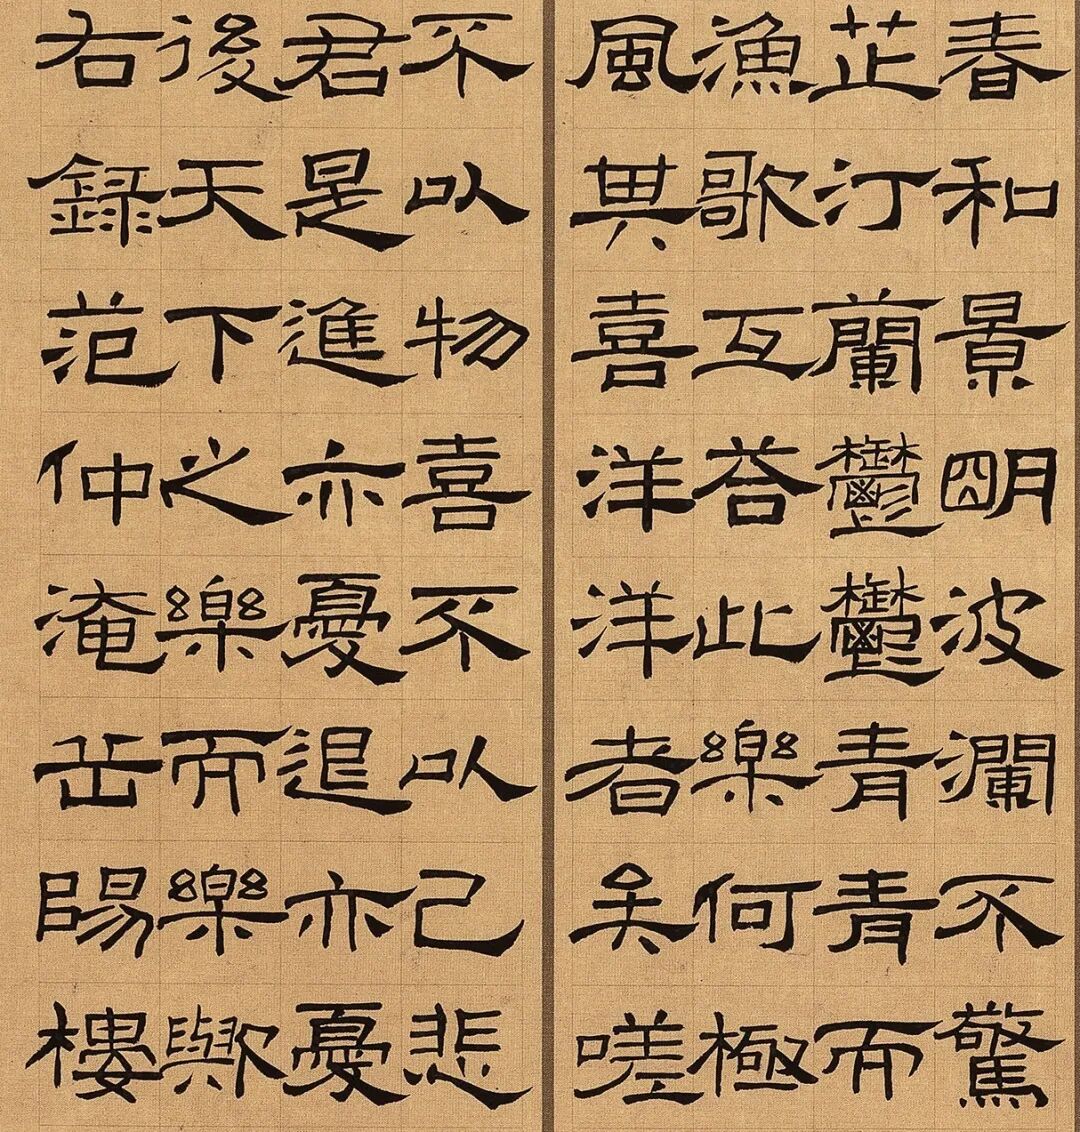 春和景明波瀾不驚
芷汀蘭鬱鬱青青而
漁歌互荅此樂何極
風其喜洋洋者矣嗟
不以物喜不以己悲
君是進亦憂退亦憂
後天下之樂而樂歟
右錄范仲淹岳陽樓